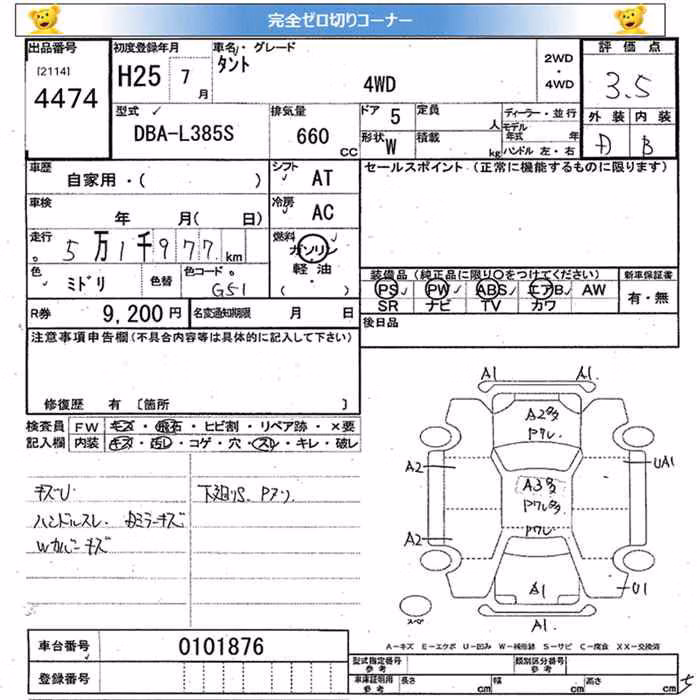 完全ゼロ切りコーナー
出品番号
[2114]
4474
初度登録年月
H25 7 月
車名・グレード
タント
4WD
2WD
・
4WD
評価点
3.5
型式
DBA-L385S
排気量
660 CC
ドア 5
定員 人
形状 W
積載 kg
ディーラー・並行
モデル年式 年
ハンドル 左・右
外装 内装
D B
車歴
自家用・( )
シフト
AT
車検
年 月( 日)
冷房
AC
セールスポイント(正常に機能するものに限ります)
走行
5万1千977km
燃料
ガソリン
軽油
( )
色
ミドリ
色替
色コード
G51
装備品(純正品に限り〇をつけてください)
新車保証書
PS PW ABS エアB AW
SR ナビ TV カワ
有・無
R券 9,200円
名変通知期限 月 日
後日品
注意事項申告欄(不具合内容等は具体的に記入して下さい)
修復歴 有 〔箇所 〕
検査員
記入欄
FW キズ・飛石・ヒビ割・リペア跡・×要
内装 キズ・汚レ・コゲ・穴・スレ・キレ・破レ
キズU
ハンドルスレ.
Wカバーキズ
下廻りS.
A1 A1
A2
A2 UA1
A3
A2
A1 U1
A1
A−キズ E−エクボ U−凹み W−補修跡 S−サビ C−腐食 XX−交換済
車台番号 0101876
登録番号
型式指定番号
参考
類別区分番号
参考
車庫証明用
参考
長さ cm 幅 cm 高さ cm